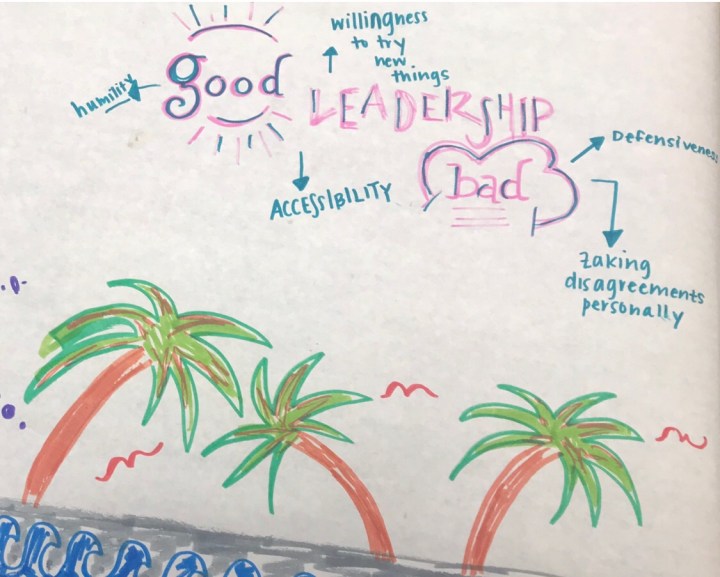 willingness
to try
new
things
humility
good
LEADERSHIP
Defensiveness
bad
ACCESSIBILITY
Zaking
disagreements
personally